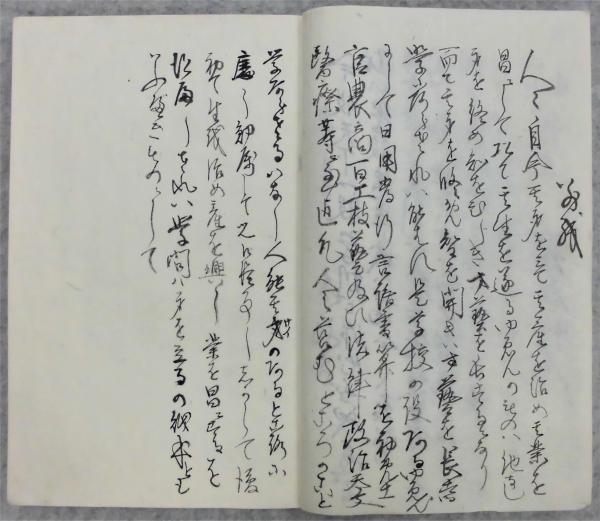 人々自今其身を立て其産を治め其業を
昌にして以て其生を遂るゆゑんのものハ他なし
身を修め智をひらき才藝を長するによるなり
而て其身を修め智を開き才藝を長する
学にあらされハ能ハす是学校の設あるゆゑん
にして日用常行言語書算を初め士
官農商百工技藝及ひ法律政治天文
醫療等に至迄凡人の営むところの事
学あらさるハなし人能其才のあるところに
應し勉励して之に従事ししかして後
初て生を治め産を興し業を昌にするを
得へしされハ学問ハ身を立るの財本とも
いふへきものにして